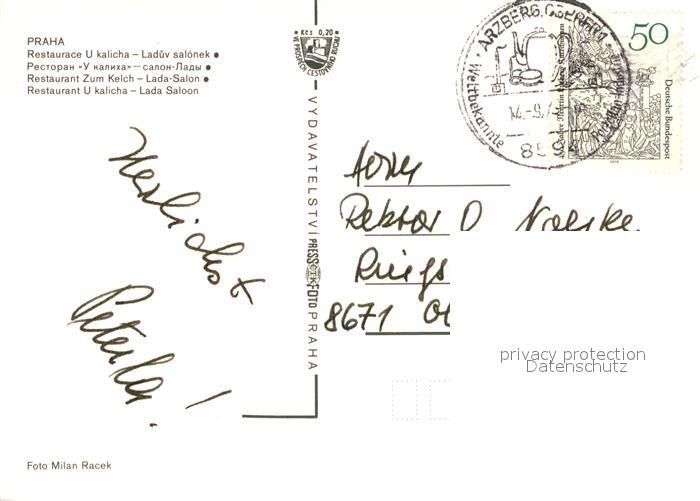 PRAHA
Restaurace U kalicha – Ladův salónek ●
Ресторан «У калиха» – салон-Лады ●
Restaurant Zum Kelch – Lada-Salon ●
Restaurant U kalicha – Lada Saloon
Kčs 0,20
VE PROSPĚCH CESTOVNÍHO RUCHU
VYDAVATELSTVÍ PRESSFOTO PRAHA
ARZBERG, OBERFR
Weltbekannte
14.-9.7
85
50
Deutsche Bundespost
Herrn
Rektor D
8671
Herzlichst
privacy protection
Datenschutz
Foto Milan Racek